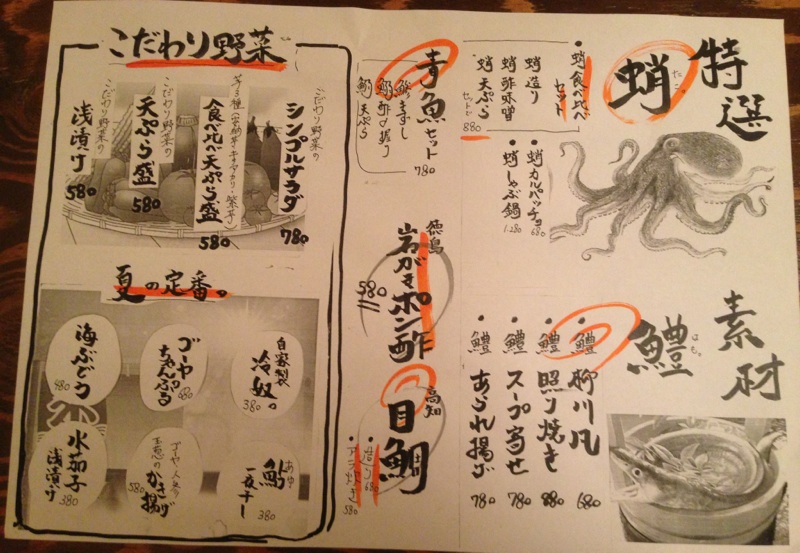 特選
素材
蛸
たこ
・蛸食べ比べセット
蛸造り
蛸酢味噌
蛸天ぷら
セットで
880
・蛸カルパッチョ 680
・蛸しゃぶ鍋 1,280
鱧
はも
・鱧柳川風 680
・鱧照り焼き 880
・鱧スープ寄せ 780
・鱧あられ揚げ 780
青魚セット 780
きずし
酢〆炙り
天ぷら
徳島
岩がきポン酢
580
高知
目鯛
・造り 680
580
こだわり野菜
こだわり野菜の
シンプルサラダ
780
食べ比べ天ぷら盛
580
こだわり野菜の
天ぷら盛
580
こだわり野菜の
浅漬け
580
夏の定番。
自家製
冷奴。
380
ゴーヤの
ちゃんぷる
680
海ぶどう
480
鮎
あゆ
一夜干し
380
ゴーヤ・人参・
玉葱のかき揚げ
580
水茄子
浅漬け
380